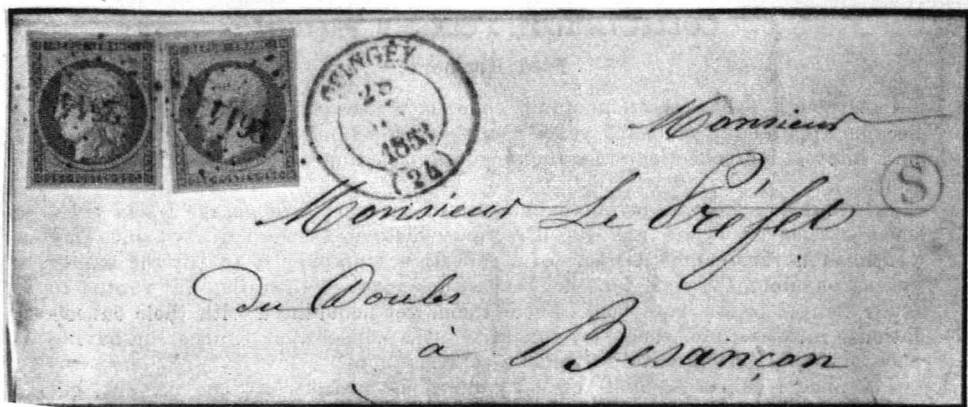 QUINGEY
28
1853
(24)
Monsieur
S
Monsieur Le Préfet
du Doubs
à Besançon